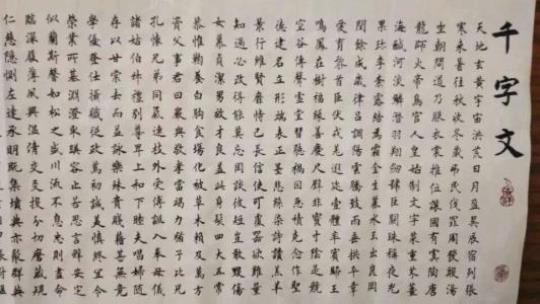 千字文
天地玄黄宇宙洪荒日月盈昃辰宿列張
寒来暑往秋收冬藏弔民伐罪周發殷湯
坐朝問道乃服衣裳推位讓國有虞陶唐
龍師火帝鳥官人皇始制文字菜重芥薑
海鹹河淡鱗潛羽翔劍號巨闕珠稱夜光
果珍李柰露結為霜金生麗水玉出崑岡
閏餘成歲律吕調陽雲騰致雨垂拱平章
愛育黎首臣伏戎羌遐迩壹體率賓歸王
鳴鳳在樹福緣善慶尺璧非寶寸陰是競
空谷傳聲虛堂習聽禍因惡積克念作聖
德建名立形端表正墨悲絲染詩讚羔羊
景行維賢靡恃己長信使可覆器欲難量
知過必改得能莫忘罔談彼短豈敢毀傷
女慕貞潔男效才良蓋此身髮四大五常
恭惟鞠養白駒食場化被草木賴及萬方
資父事君曰嚴與敬孝當竭力猶子比兒
孔懷兄弟同氣連枝外受傅訓入奉母儀
諸姑伯叔禮别尊卑上和下睦夫唱婦随
存以甘棠去而益詠樂殊貴賤籍甚無竟
學優登仕攝職從政篤初誠美慎終宜令
榮業所基淵澄取暎容止若思言辭安定
似蘭斯馨如松之盛川流不息忠則盡命
臨深履薄夙興温凊交友投分切磨箴規
仁慈隱惻左達承明既集墳典亦聚群英